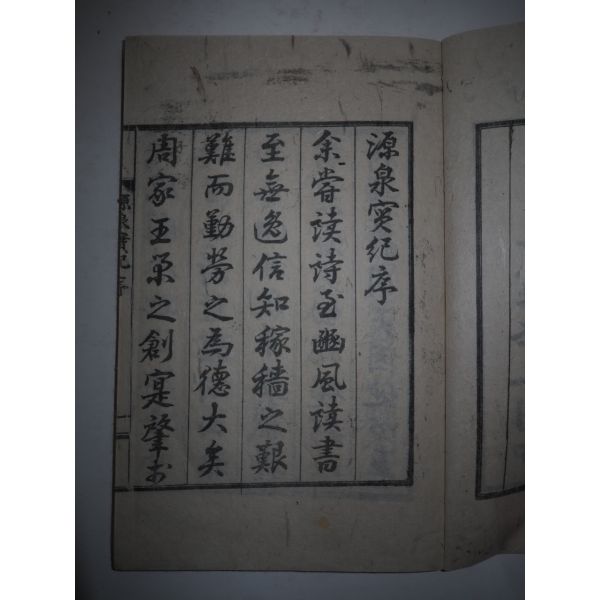 源泉實紀序
余嘗读詩至豳風读書
至無逸信知稼穡之艱
難而勤勞之為德大矣
周家王業之創寔肇於
源泉實紀 序